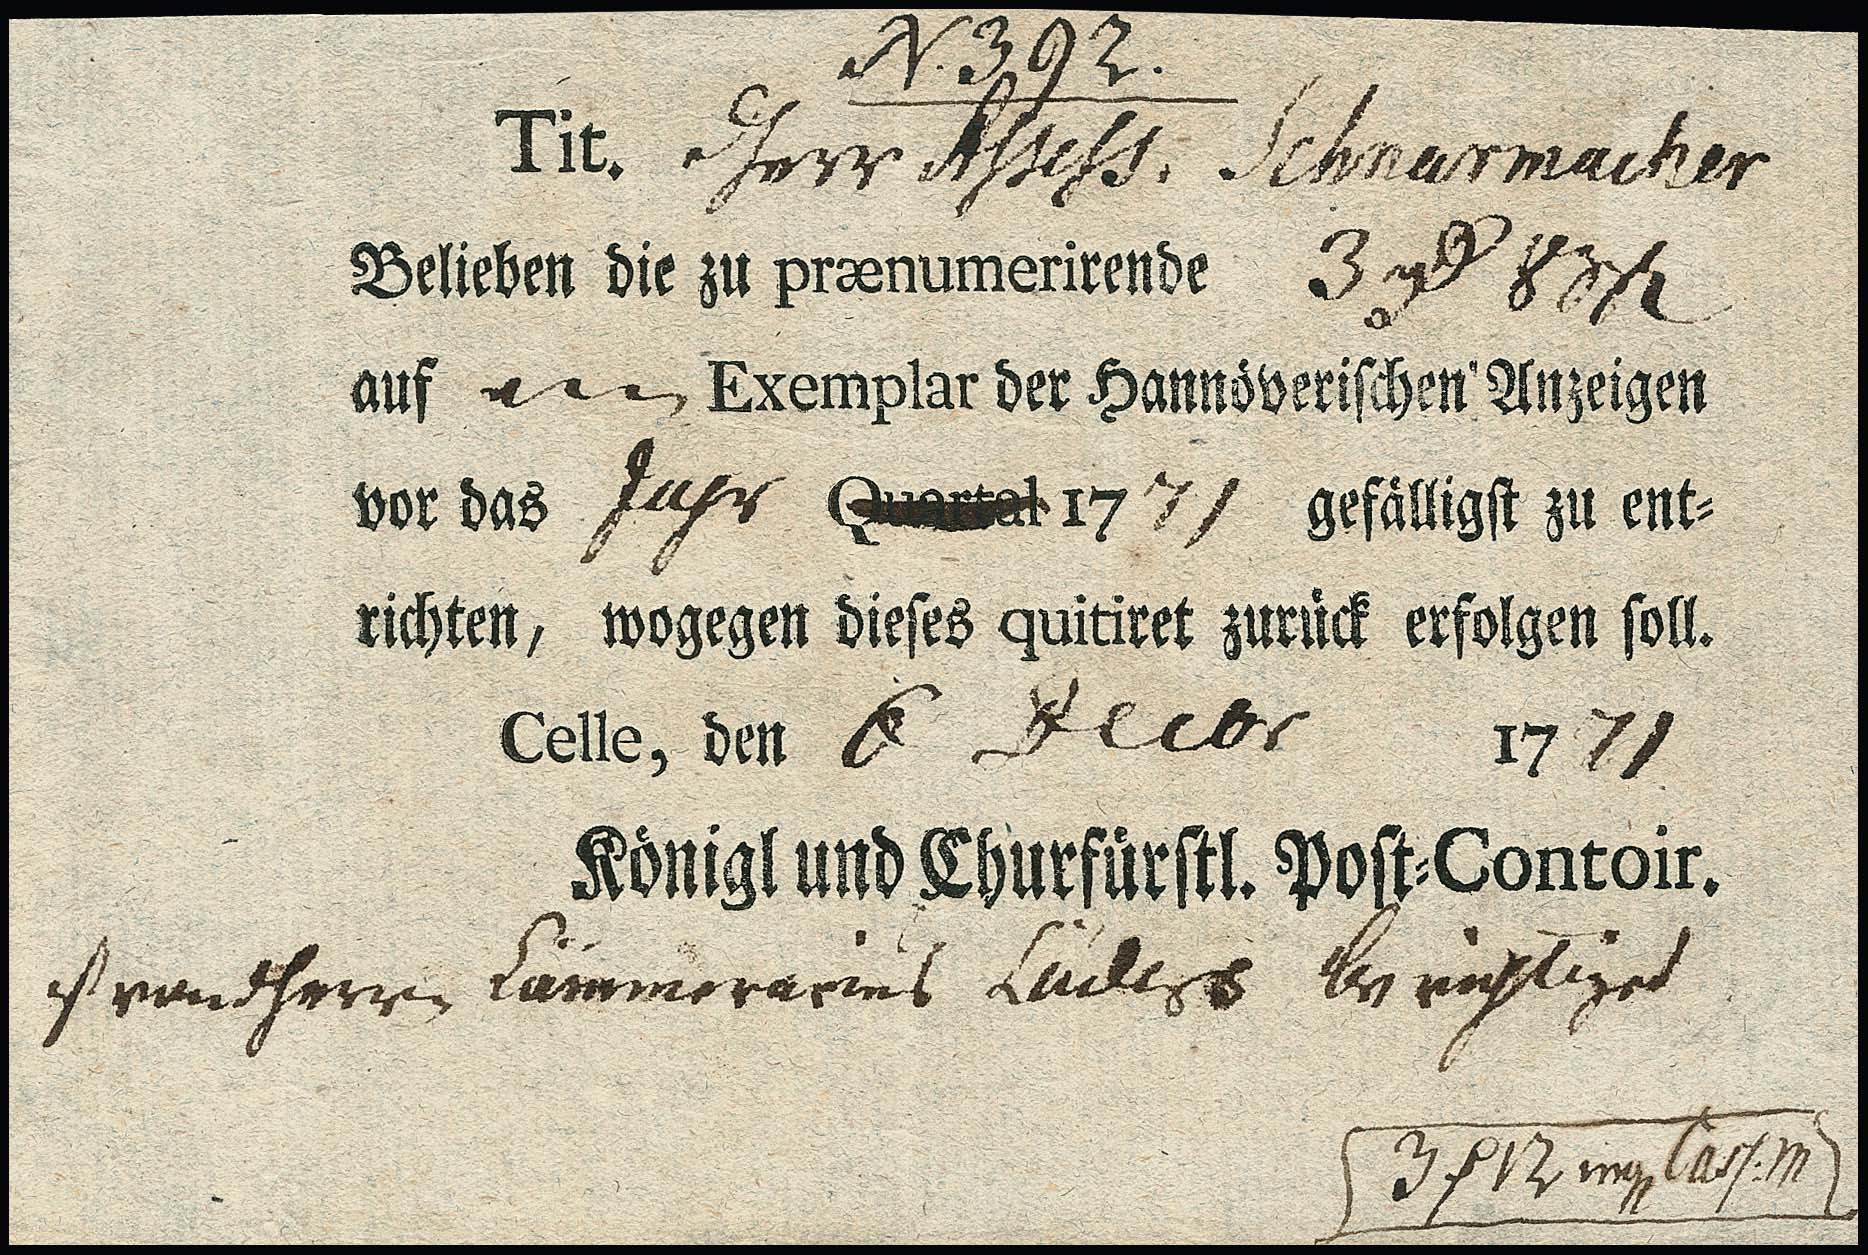 N. 392.
Tit. Herr Assess. Schnarmacher
Belieben die zu prænumerirende 3
auf ein Exemplar der Hannöverischen Anzeigen
vor das Jahr Quartal 1771 gefälligst zu ent=
richten, wogegen dieses quitiret zurück erfolgen soll.
Celle, den 6 Decbr 1771
Königl und Churfürstl. Post=Contoir.
Herrn Cämmerarius Lüders berichtiget
3 12 Cass. M